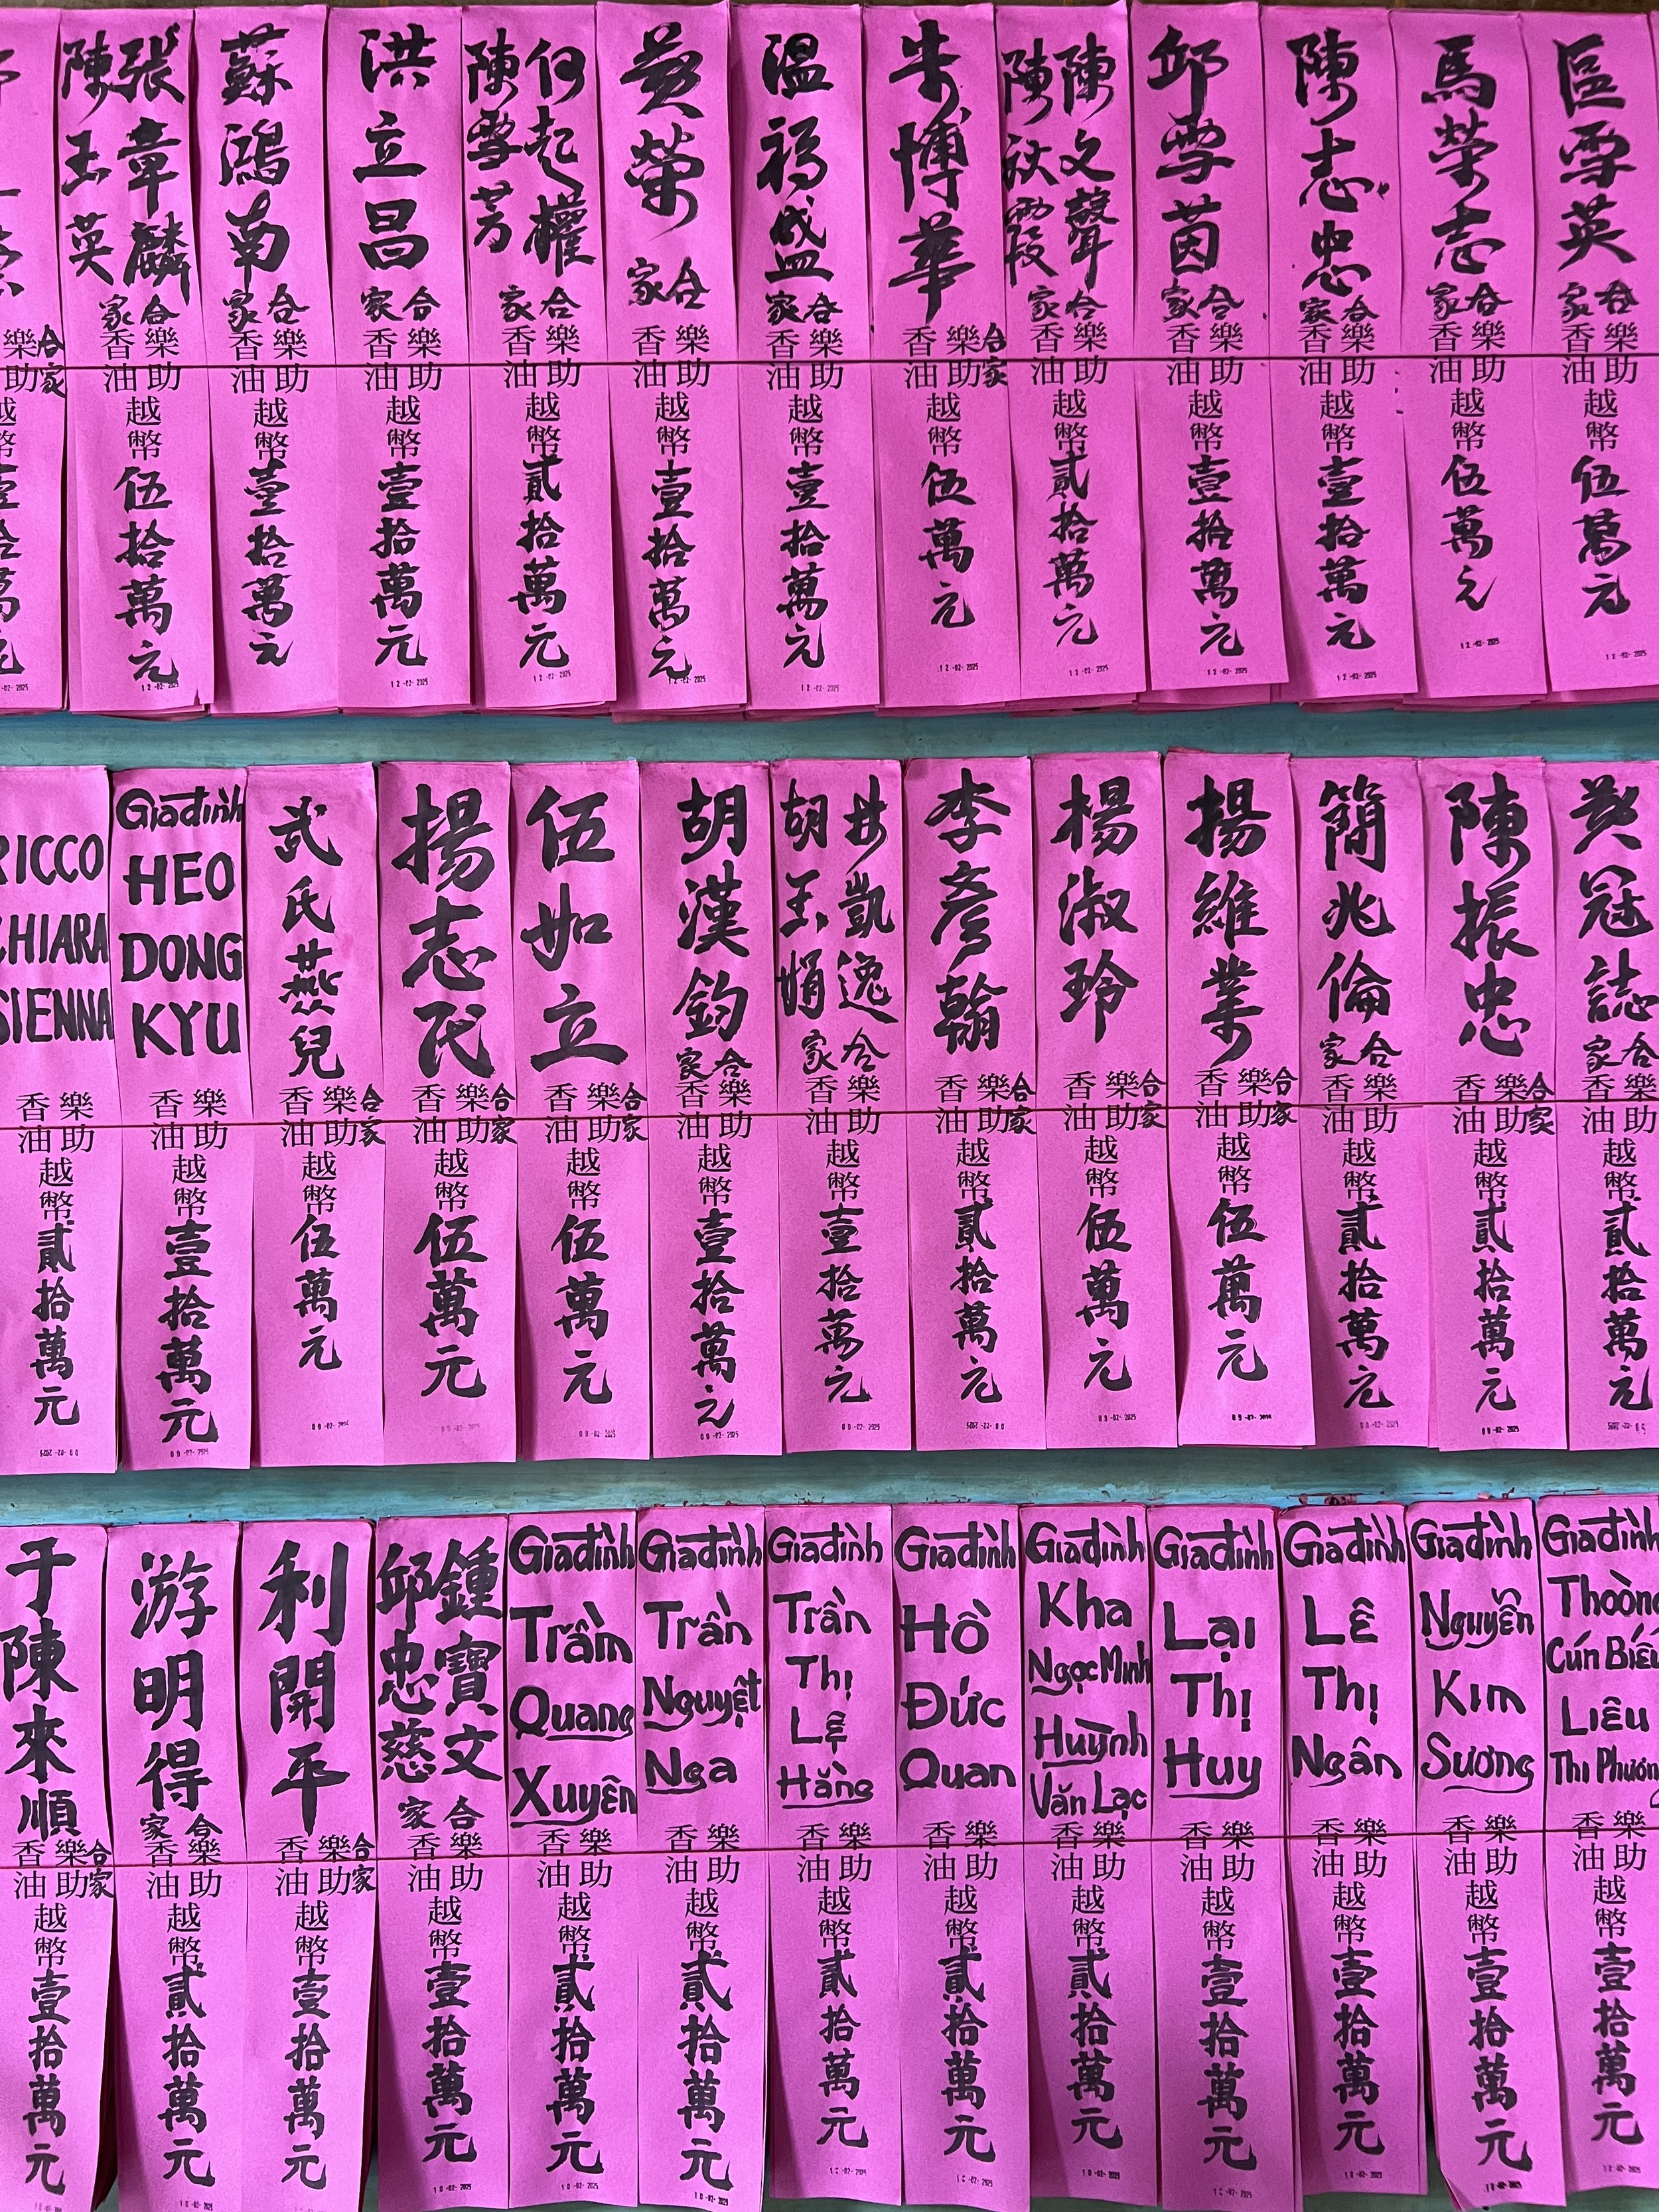 區雪英
合家
樂助
香油
越幣伍萬元
12-02-2025
馬榮志
合家
樂助
香油
越幣伍萬元
12-02-2025
陳志忠
合家
樂助
香油
越幣壹拾萬元
12-02-2025
邱雪茵
合家
樂助
香油
越幣壹拾萬元
12-02-2025
陳文聲
陳秋霞
合家
樂助
香油
越幣貳拾萬元
12-02-2025
朱博華
合家
樂助
香油
越幣伍萬元
12-02-2025
溫福盛
合家
樂助
香油
越幣壹拾萬元
12-02-2025
黃榮
合家
樂助
香油
越幣壹拾萬元
12-02-2025
何起權
陳雪芳
合家
樂助
香油
越幣貳拾萬元
12-02-2025
洪立昌
合家
樂助
香油
越幣壹拾萬元
12-02-2025
蘇鴻南
合家
樂助
香油
越幣壹拾萬元
張章麟
陳玉英
合家
樂助
香油
越幣伍拾萬元
12-02-2025
合家
樂助
黃冠誌
合家
樂助
香油
越幣貳拾萬元
陳振忠
合家
樂助
香油
越幣貳拾萬元
09-02-2025
簡兆倫
合家
樂助
香油
越幣貳拾萬元
09-02-2025
揚維業
合家
樂助
香油
越幣伍萬元
楊淑玲
合家
樂助
香油
越幣伍萬元
09-02-2025
李彥翰
合家
樂助
香油
越幣貳拾萬元
凱逸
胡玉娟
合家
樂助
香油
越幣壹拾萬元
09-02-2025
胡漢鈞
合家
樂助
香油
越幣壹拾萬元
09-02-2025
伍如立
合家
樂助
香油
越幣伍萬元
09-02-2025
揚志民
合家
樂助
香油
越幣伍萬元
09-02-2025
武氏燕兒
合家
樂助
香油
越幣伍萬元
Gia đình
HEO
DONG
KYU
樂助
香油
越幣壹拾萬元
09-02-2025
RICCO
CHIARA
SIENNA
樂助
香油
越幣貳拾萬元
Gia đình
Thoòng
Cún Biếu
Liêu
Thị Phương
樂助
香油
越幣壹拾萬元
10-02-2025
Gia đình
Nguyễn
Kim
Sương
樂助
香油
越幣壹拾萬元
10-02-2025
Gia đình
Lê
Thị
Ngân
樂助
香油
越幣壹拾萬元
10-02-2025
Gia đình
Lại
Thị
Huy
樂助
香油
越幣壹拾萬元
10-02-2025
Gia đình
Kha
Ngọc Minh
Huỳnh
Văn Lạc
樂助
香油
越幣貳拾萬元
10-02-2025
Gia đình
Hồ
Đức
Quan
樂助
香油
越幣貳拾萬元
10-02-2025
Gia đình
Trần
Thị
Lệ
Hằng
樂助
香油
越幣貳拾萬元
10-02-2025
Gia đình
Trần
Nguyệt
Nga
樂助
香油
越幣貳拾萬元
10-02-2025
Gia đình
Trầm
Quang
Xuyên
樂助
香油
越幣貳拾萬元
10-02-2025
鍾寶文
邱忠慈
合家
樂助
香油
越幣壹拾萬元
10-02-2025
利開平
合家
樂助
香油
越幣壹拾萬元
10-02-2025
游明得
合家
樂助
香油
越幣貳拾萬元
10-02-2025
于陳來順
合家
樂助
香油
越幣壹拾萬元